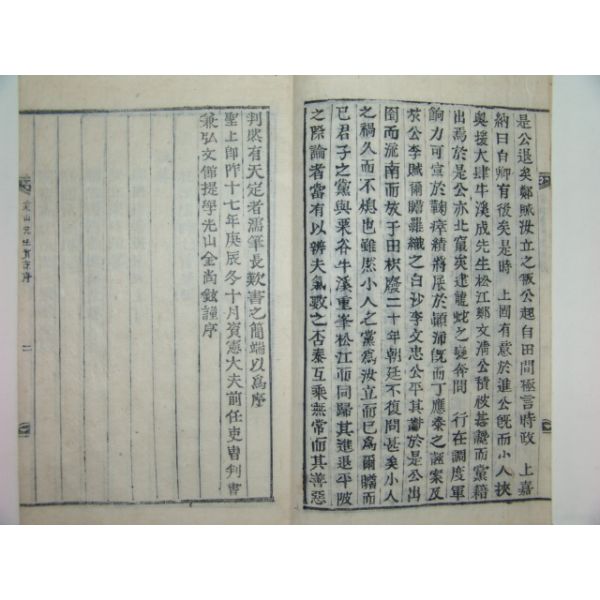 是公退矣鄭賊汝立之叛公起自田間極言時政　上嘉
納曰白卿有後矣是時　上國有意於進公旣而小人挾
奧援大肆牛溪成先生松江鄭文淸公積被甚譏而黨籍
出焉於是公亦北竄矣逮龍蛇之變奔問　行在調度軍
餉力可宣於鞠瘁績將展於頗沛旣而丁應泰之誣案及
於公李賊爾瞻羅織之白沙李文忠公平其讞於是公出
圄而流南而放于田積廢二十年朝廷不復問甚矣小人
之禍久而不熄也雖然小人之黨爲汝立而已爲爾瞻而
已君子之黨與栗谷牛溪重峯松江而同歸其進退平陂
之際論者當有以辨夫氣數之否泰互乘無常而其善惡
判然有天定者濡筆長歎書之簡端以爲序
聖上卽阼十七年庚辰冬十月資憲大夫前任吏曹判書
兼弘文館提學光山金尙鉉謹序
山先生
序
二